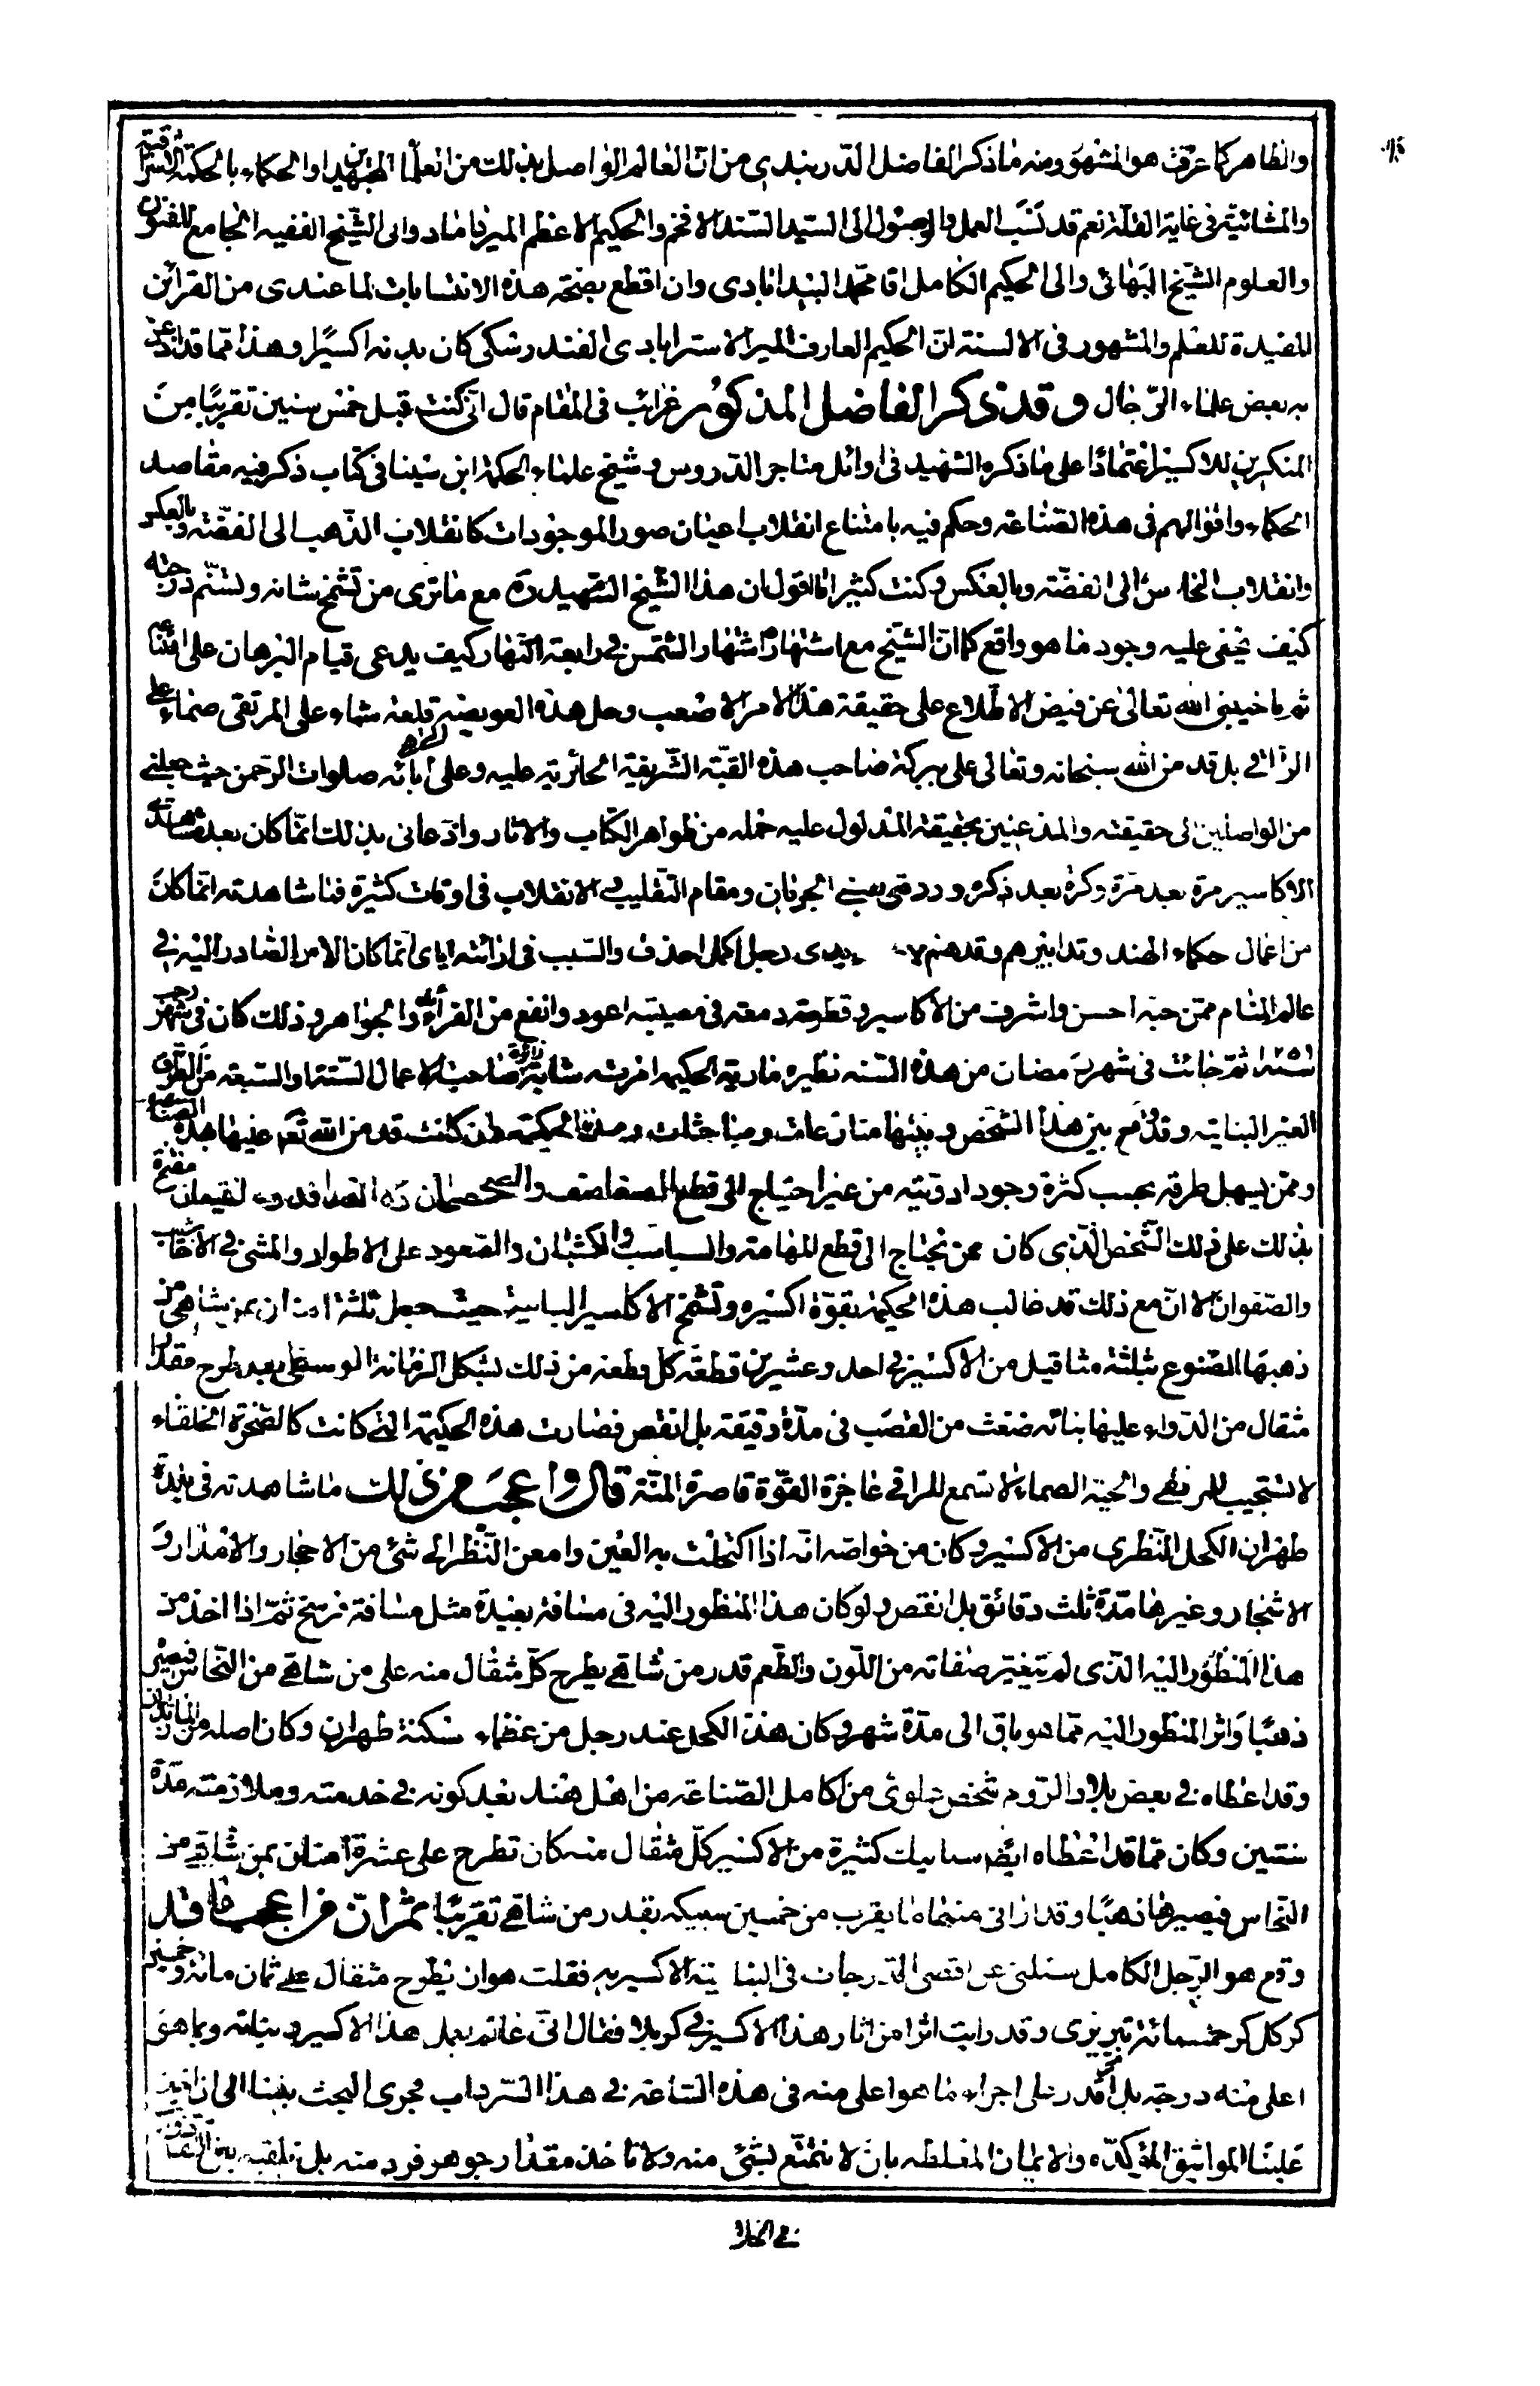 والظاهر كما عرفت هو المشهور ومنه ما ذكر الفاضل الدربندى من ان العالم الواصل بذلك من العلماء المجتهدين او الحكماء بالحكمة الاشراقية
والمشائية فى غاية القلة نعم قد نسب العمل والوصول الى السيد السند الافخم والحكيم الاعظم الميرداماد والى الشيخ الفقيه الجامع للفنون
والعلوم الشيخ البهائى والى الحكيم الكامل اقا محمد البيدابادى وان اقطع بصحة هذه الانتسابات لما عندى من القرائن
المفيدة للعلم والمشهور فى الالسنة ان الحكيم العارف المير الاسترابادى الفندرسكى كان بدنه اكسيرا وهذا مما قد اذعن
به بعض علماء الرجال وقد ذكر الفاضل المذكور غرائب فى المقام قال انى كنت قبل خمس سنين تقريبا من
المنكرين للاكسير اعتمادا على ما ذكره الشهيد فى اوائل متاجر الدروس وشيخ علماء الحكمة ابن سينا فى كتاب ذكر فيه مقاصد
الحكماء واقوالهم فى هذه الصناعة وحكم فيه بامتناع انقلاب اعيان صور الموجودات كانقلاب الذهب الى الفضة وبالعكس
وانقلاب النحاس الى الفضة وبالعكس وكنت كثيرا ما اقول ان هذا الشيخ الشهيد ره مع ما ترى من تشمخ شانه وتسنم درجته
كيف يخفى عليه وجود ما هو واقع كما ان الشيخ مع اشتهاره اشتهار الشمس فى رابعة النهار كيف يدعى قيام البرهان على امتناعه
ثم ما خيبنى الله تعالى عن فيض الاطلاع على حقيقة هذا الامر الاصعب وحل هذه العويصة قلعة شماء على المرتقى صماء على
الراقى بل قد من الله سبحانه وتعالى على ببركة صاحب هذه القبة الشريفة الحائرية عليه وعلى ابائه الكرام صلوات الرحمن حيث جعلنى
من الواصلين الى حقيقته والمذعنين بحقيقة المدلول عليه جملة من ظواهر الكتاب والاثار واذعانى بذلك انما كان بعد مشاهدتى
الاكاسير مرة بعد مرة وكرة بعد كرة ورؤيتى بعينى الجريان ومقام التقليب والانقلاب فى اوقات كثيرة فما شاهدته انما كان
من اعمال حكماء الهند وتدابيرهم وقد بيدى رجل اكمل احذق والسبب فى ارائته اياى انما كان الامر الصادر اليه فى
عالم المنام ممن حبه احسن واشرف من الاكاسير وقطرة دمعة فى مصيبته اعود وانفع من الفرائد والجواهر وذلك كان فى شهر رجب
سنة ١٢٥١ ثم جائت فى شهر رمضان من هذه السنة نظيره مارية الحكيمة افريته شابة زائرة صاحبة الاعمال الستة او السبعة من الطرق
الغير النباتية وقد وقع بين هذا الشخص وبينها منازعات ومباحثات وهذه الحكيمة وان كانت قد من الله تعالى عليها بهذه الصناعة
وممن يسهل طرقه بحسب كثرة وجود ادويته من غير احتياج الى قطع
بذلك على ذلك الشخص الذى كان ممن يحتاج الى قطع المهامة والسباسب والكثبان والصعود على الاطوار والمشى فى الاخاشب
والصفوان الا ان مع ذلك قد غالب هذه الحكيمة بقوة اكسيره وتشمخ الاكاسير النباتية حيث جعل ثلثة امنان بمن شاهى من
ذهبها المصنوع بثلثة مثاقيل من الاكسير فى احد وعشرين قطعة كل قطعة من ذلك بشكل الرمانة الوسطى بعد طرح مقدار
مثقال من الدواء عليها بنائه ضغث من القصب فى مدة دقيقة بل انقص فصارت هذه الحكيمة التى كانت كالصخرة الخلقاء
لا تستجيب للمرتقى والحية الصماء لا تسمع للراقى عاجزة القوة قاصرة المنة قال واعجب من ذلك ما شاهدته فى بلدة
طهران الكحل النظرى من الاكسير وكان من خواصه انه اذا اكتحلت به العين وامعن النظر الى شئ من الاحجار والامدار و
الاشجار وغيرها مدة ثلث دقائق بل انقص ولو كان هذا المنظور اليه فى مسافة بعيدة مثل مسافة فرسخ ثم اذا اخذ من
هذا المنظور اليه الذى لم تتغير صفاته من اللون والطعم قدر من شاهى يطرح كل مثقال منه على من شاهى من النحاس فيصير
ذهبا واثر المنظور اليه مما هو باق الى مدة شهر وكان هذا الكحل عند رجل من عظماء سكنة طهران وكان اصله من
وقد اعطاه فى بعض بلاد الروم شخص من كامل الصناعة من اهل هند بعد كونه فى خدمته وملازمته مدة
سنتين وكان مما قد اعطاه ايضا سبايك كثيرة من الاكسير كل مثقال منه كان تطرح على عشرة امنان بمن شاهى من
النحاس فيصيرها ذهبا وقد ارانى منها ما يقرب من خمسين سبيكة بقدر من شاهى تقريبا ثم ان من اعجب ما قد
وقع هو الرجل الكامل سئلنى عن اقصى الدرجات فى النباتية الاكسيرية فقلت هو ان يطرح مثقال على ثمان مائة وخمسين
كر كل كر خمسمائة تبريزى وقد رايت اثرا من اثار هذا الاكسير فى كربلا فقال انى عالم بعمل هذا الاكسير ونباته وبما هو
اعلى منه درجة بل اقدر على اجراء ما هو اعلى منه فى هذه الساعة فى هذا السرداب فجرى البحث بيننا الى ان اخذ
علينا المواثيق المؤكدة والايمان المغلظة بان لا نتمتع بشئ منه ولا ناخذ مقدار جوهر فرد منه بل نلقيه بعد
فى الخلاء